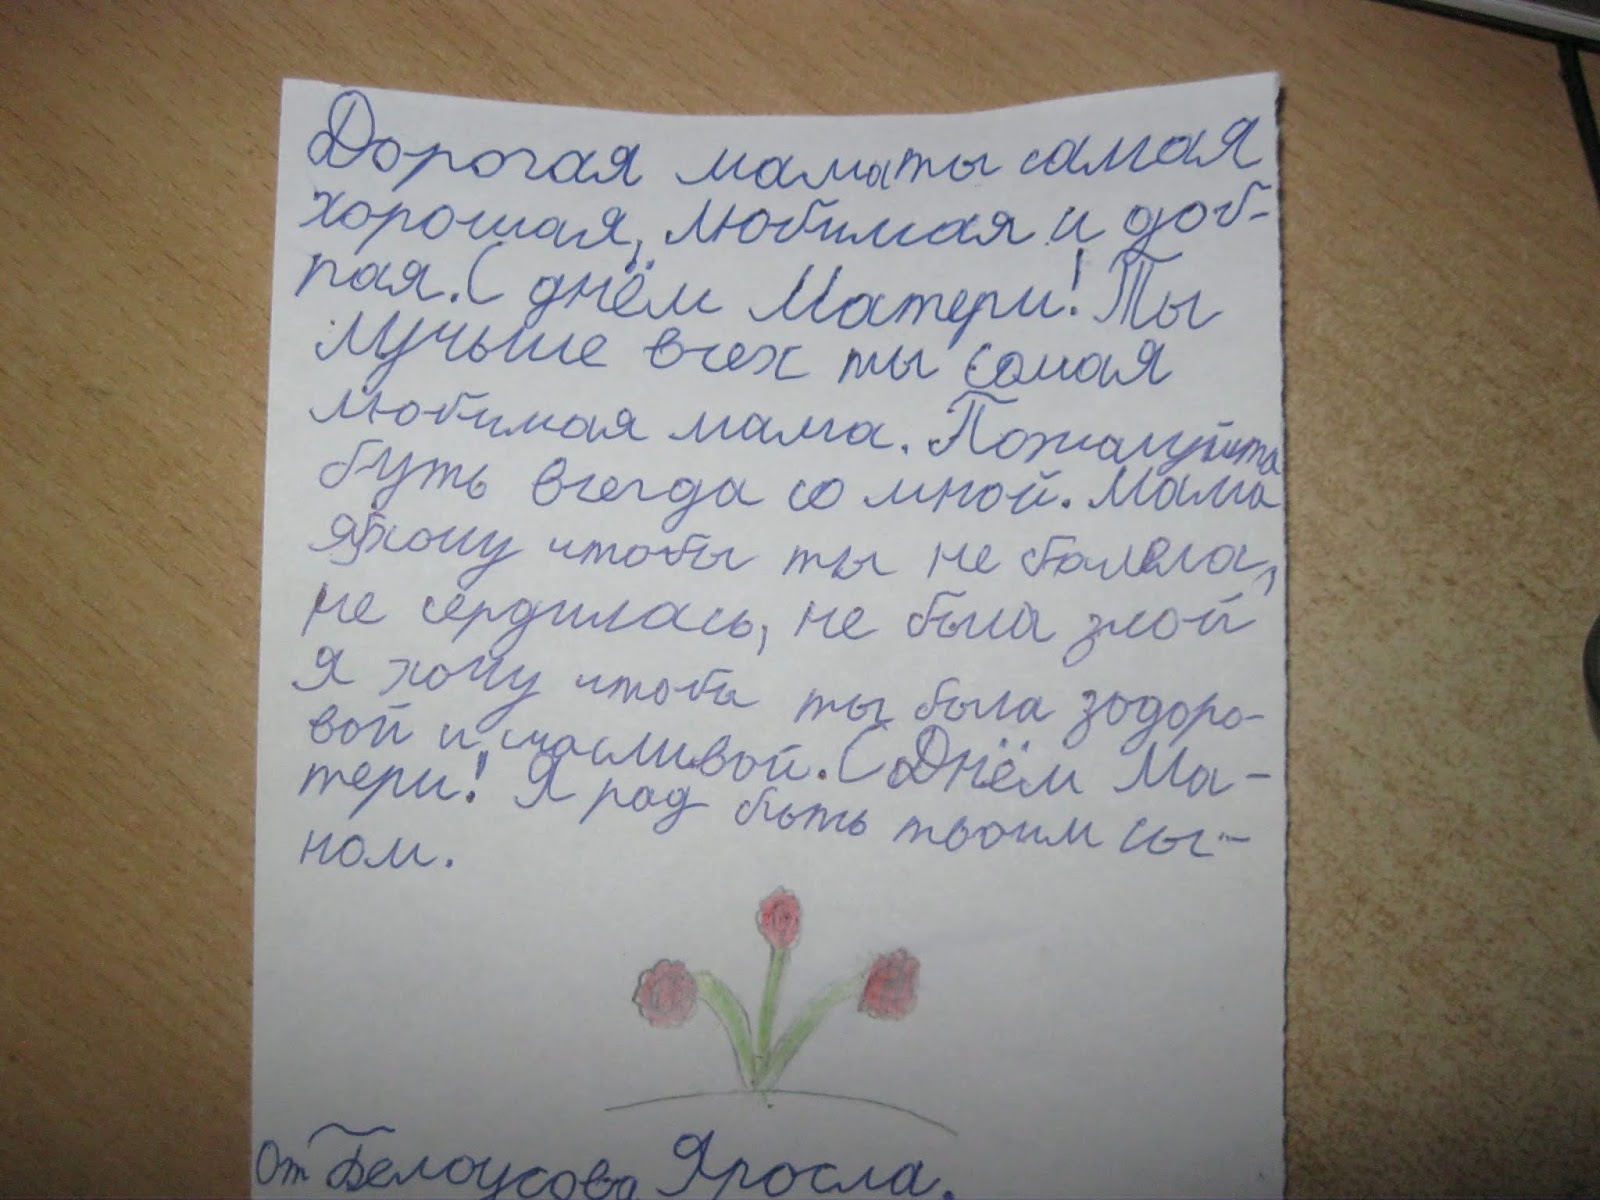 Дорогая мама ты самая
хорошая, любимая и доб-
рая. С днём Матери! Ты
лучьше всех ты самая
любимая мама. Пожалуйста
буть всегда со мной. Мама
я хочу чтобы ты не болела,
не сердилась, не была злой
я хочу чтобы ты была здоро-
вой и счасливой. С Днём Ма-
тери! Я рад быть твоим сы-
ном.
От Белоусова Яросла.